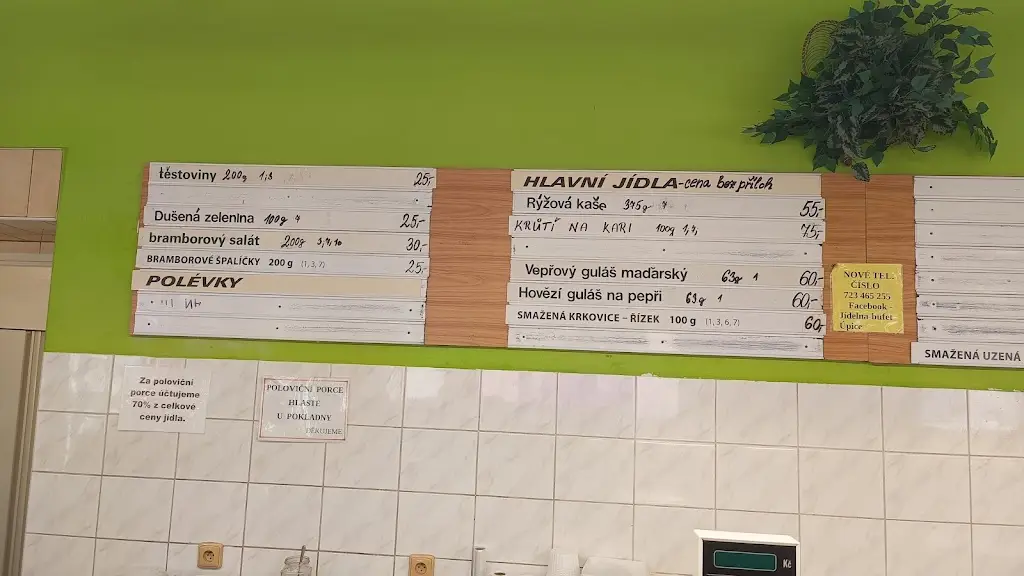 těstoviny 200g 1,3 25,-
Dušená zelenina 100g 25,-
bramborový salát 200g 3,9,10 30,-
BRAMBOROVÉ ŠPALÍČKY 200 g (1, 3, 7) 25,-
POLÉVKY
HLAVNÍ JÍDLA-cena bez příloh
Rýžová kaše 375g 55,-
KRŮTÍ NA KARI 100g 1,7, 75,-
Vepřový guláš maďarský 63g 1 60,-
Hovězí guláš na pepři 63g 1 60,-
SMAŽENÁ KRKOVICE – ŘÍZEK 100 g (1, 3, 6, 7) 60,-
NOVÉ TEL.
ČÍSLO
723 465 255
Facebook -
Jídelna bufet
Úpice
SMAŽENÁ UZENÁ
Za poloviční
porce účtujeme
70% z celkové
ceny jídla.
POLOVIČNÍ PORCE
HLASTE
U POKLADNY
DĚKUJEME
Kč